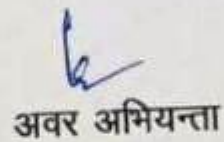 अवर अभियन्ता